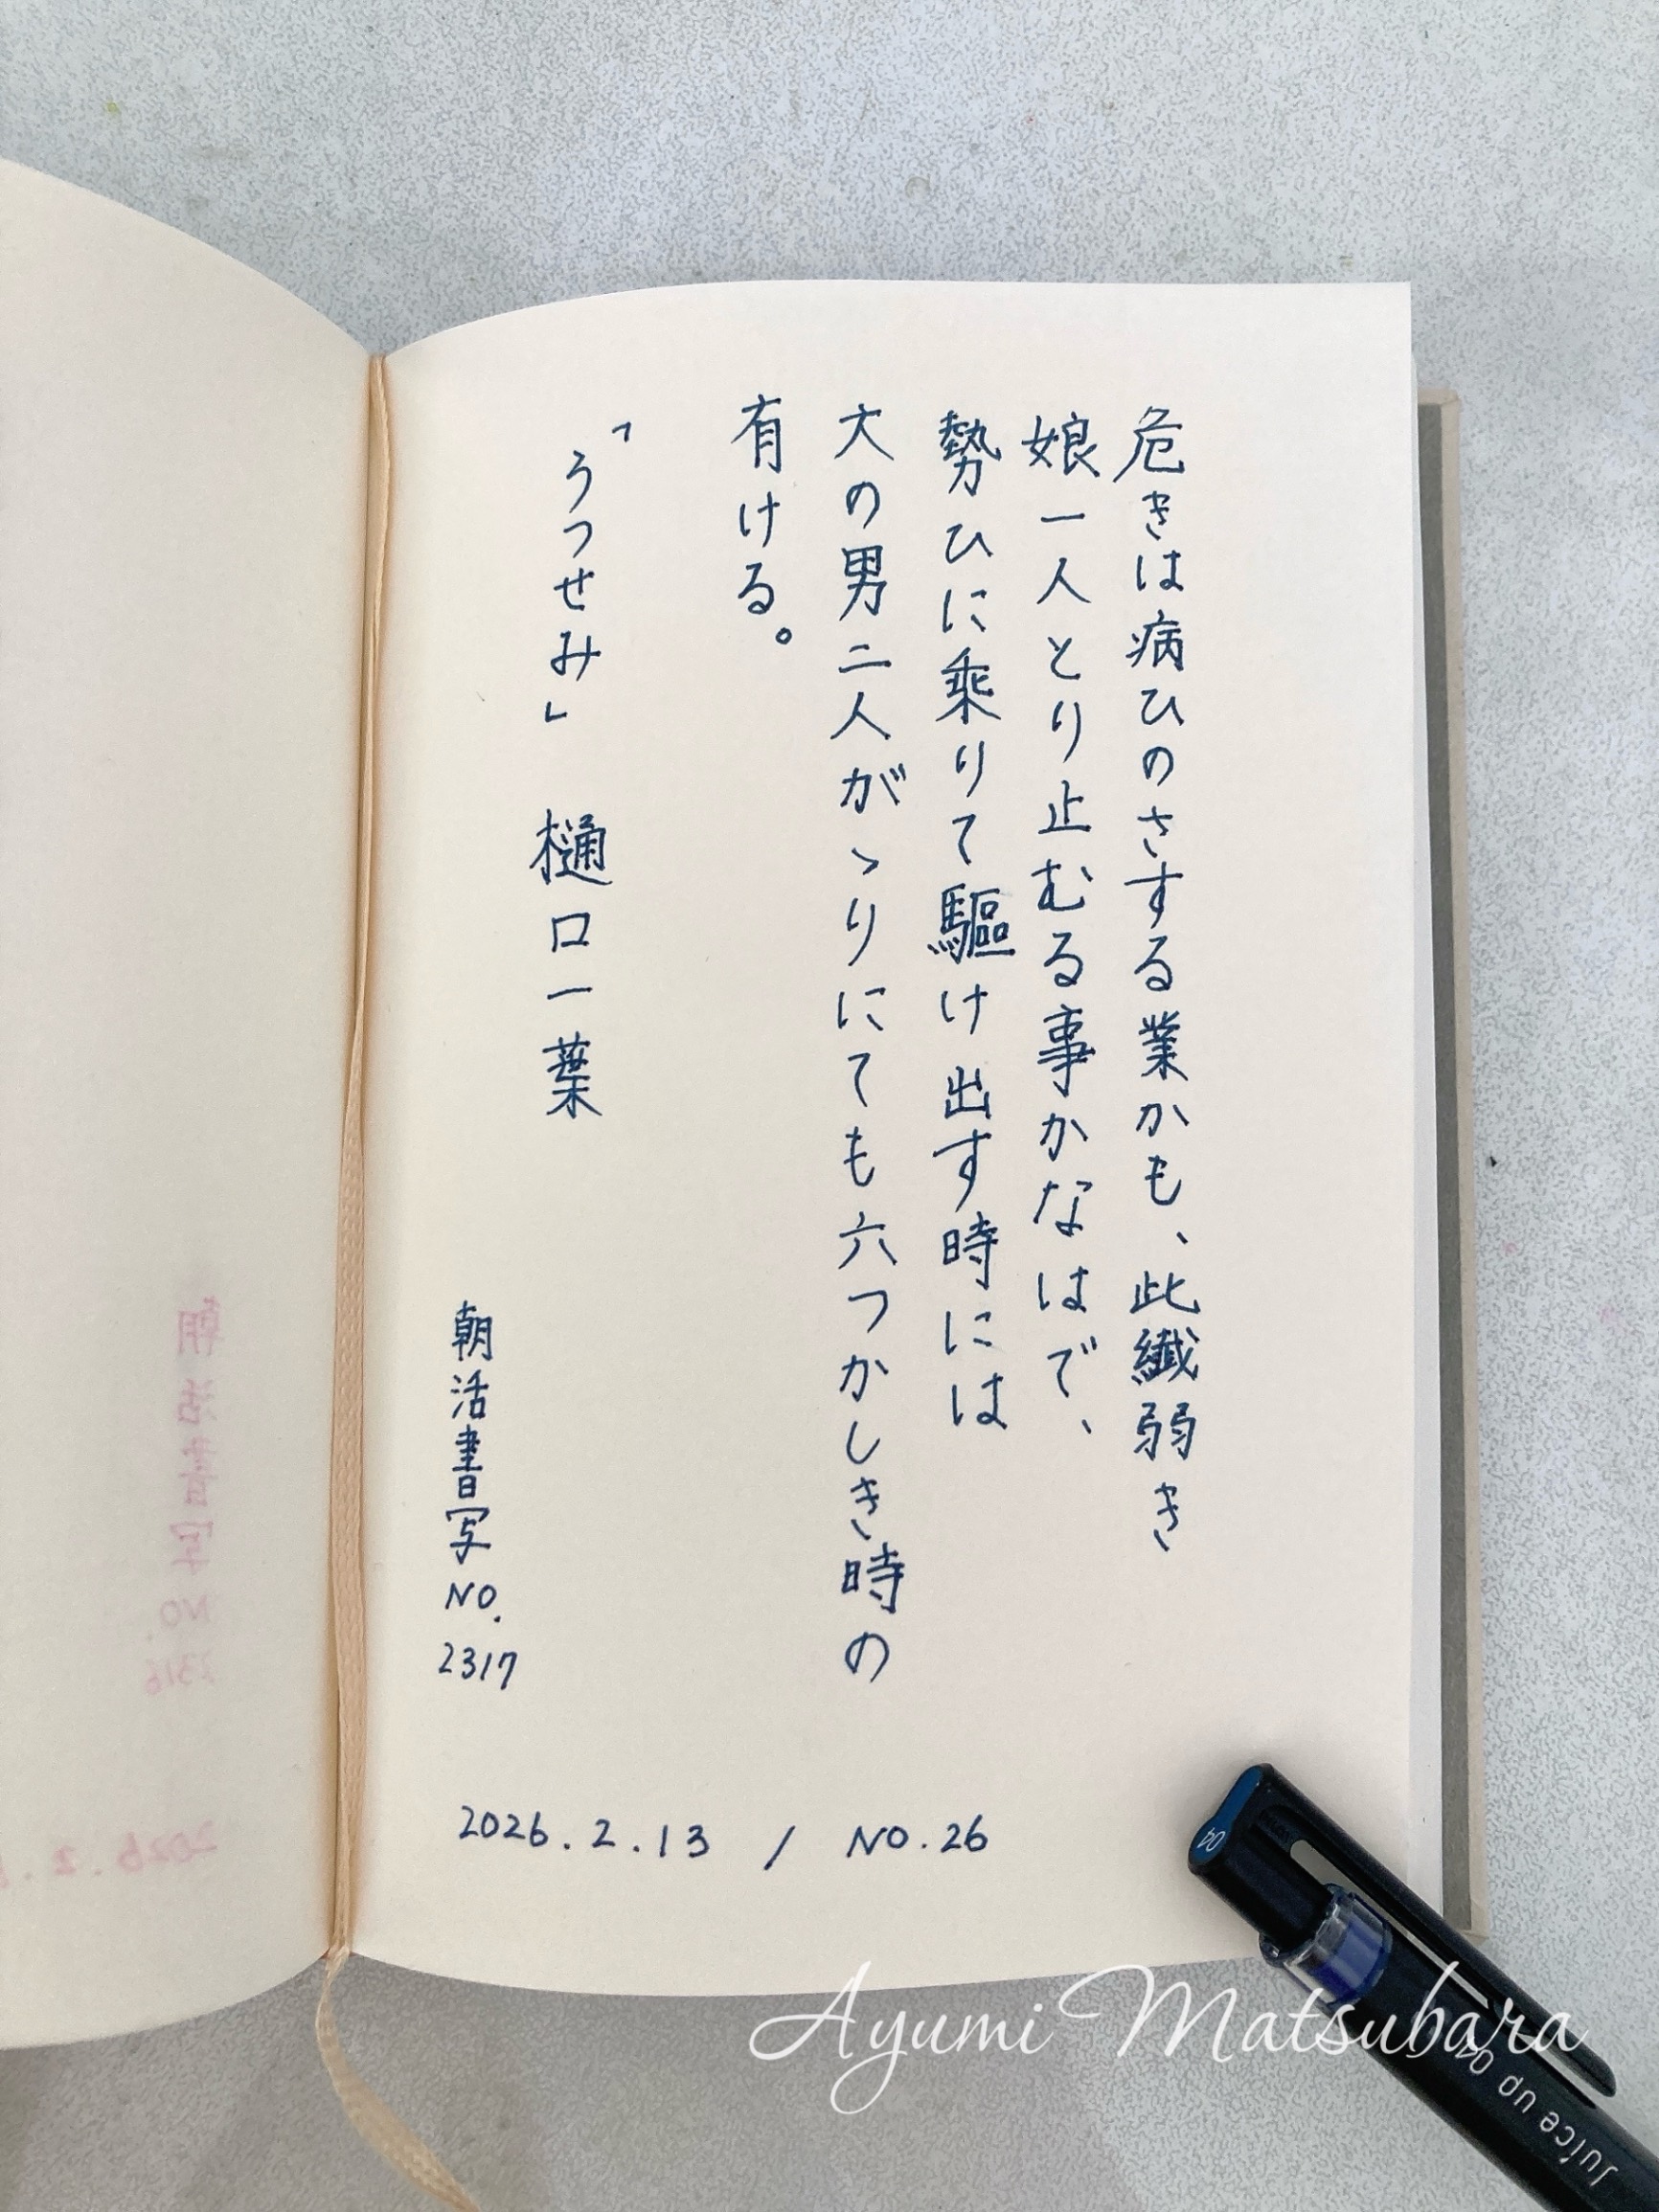 危きは病ひのさする業かも、此纖弱き
娘一人とり止むる事かなはで、
勢ひに乘りて驅け出す時には
大の男二人がゝりにても六つかしき時の
有ける。
「うつせみ」 樋口一葉
朝活書写NO.2317
2026.2.13 / NO.26
朝活書写NO.2316
2026.2.
04
Juice up 04
Ayumi Matsubara